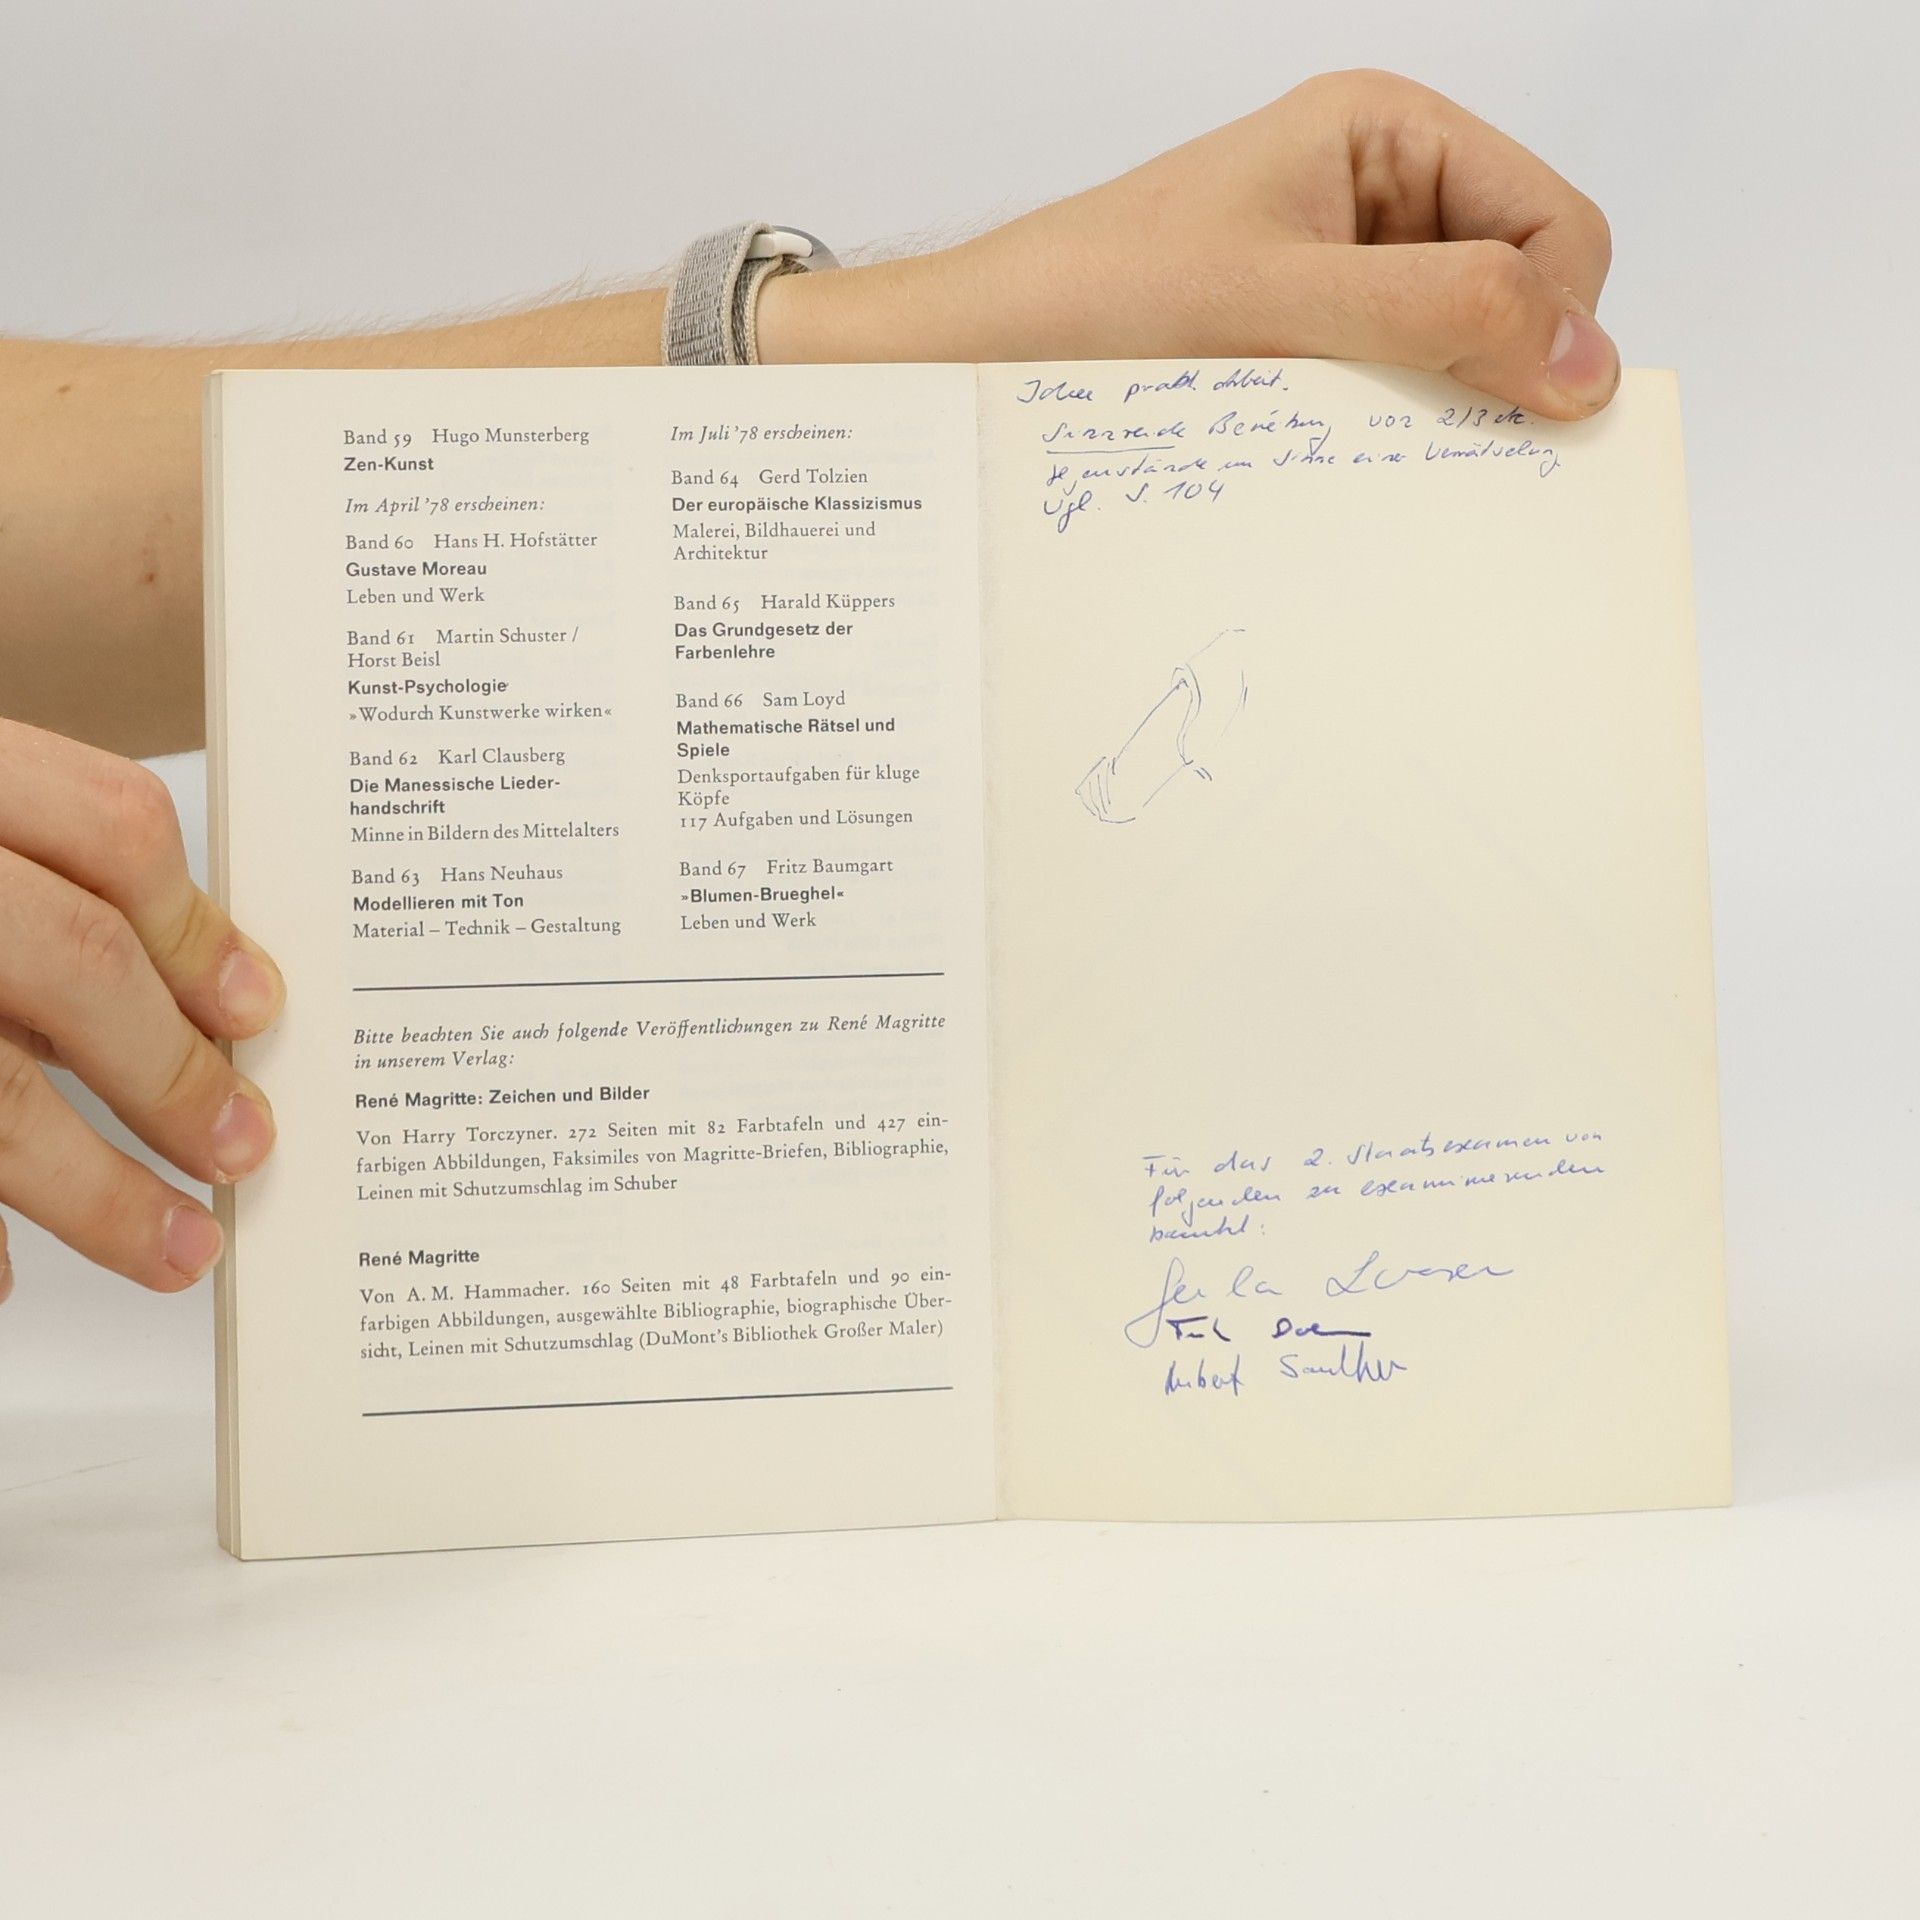 Band 59 Hugo Munsterberg
Zen-Kunst
Im April '78 erscheinen:
Band 60 Hans H. Hofstätter
Gustave Moreau
Leben und Werk
Band 61 Martin Schuster /
Horst Beisl
Kunst-Psychologie
»Wodurch Kunstwerke wirken«
Band 62 Karl Clausberg
Die Manessische Lieder-
handschrift
Minne in Bildern des Mittelalters
Band 63 Hans Neuhaus
Modellieren mit Ton
Material – Technik – Gestaltung
Im Juli '78 erscheinen:
Band 64 Gerd Tolzien
Der europäische Klassizismus
Malerei, Bildhauerei und
Architektur
Band 65 Harald Küppers
Das Grundgesetz der
Farbenlehre
Band 66 Sam Loyd
Mathematische Rätsel und
Spiele
Denksportaufgaben für kluge
Köpfe
117 Aufgaben und Lösungen
Band 67 Fritz Baumgart
»Blumen-Brueghel«
Leben und Werk
Bitte beachten Sie auch folgende Veröffentlichungen zu René Magritte
in unserem Verlag:
René Magritte: Zeichen und Bilder
Von Harry Torczyner. 272 Seiten mit 82 Farbtafeln und 427 ein-
farbigen Abbildungen, Faksimiles von Magritte-Briefen, Bibliographie,
Leinen mit Schutzumschlag im Schuber
René Magritte
Von A. M. Hammacher. 160 Seiten mit 48 Farbtafeln und 90 ein-
farbigen Abbildungen, ausgewählte Bibliographie, biographische Über-
sicht, Leinen mit Schutzumschlag (DuMont's Bibliothek Großer Maler)
prakt. Arbeit.
von 2/3
Gegenstände im Sinne einer Verrätselung
vgl. S. 104
Für das 2. Staatsexamen von
folgenden zu examinierenden